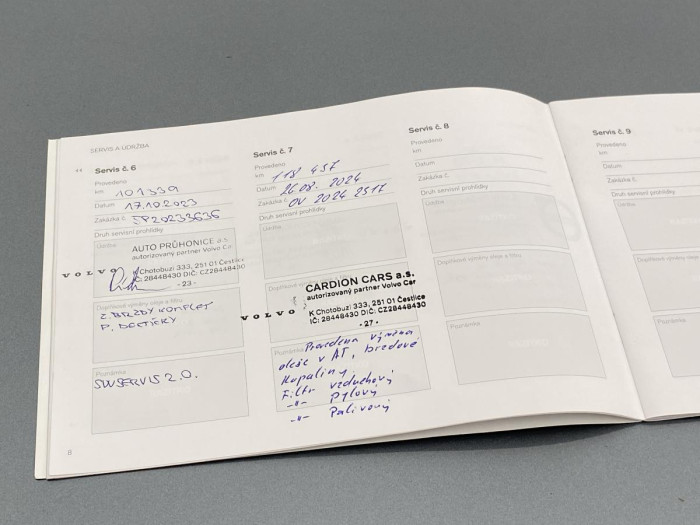 SERVIS A ÚDRŽBA
Servis č. 6
Provedeno
km 101339
Datum 17.10.2023
Zakázka č. FP20233636
Druh servisní prohlídky
Údržba
AUTO PRŮHONICE a.s.
autorizovaný partner Volvo Car
VOLVO
K Chotobuzi 333, 251 01 Čestlice
IČ: 28448430 DIČ: CZ28448430
- 23 -
Doplňkové výměny oleje a filtru
Z BRZDY KOMPLET
P. DESTIČKY
Poznámka
SW SERVIS 2.0.
8
Servis č. 7
Provedeno
km 118 457
Datum 26.08. 2024
Zakázka č. OV 2024 2517
Druh servisní prohlídky
Údržba
CARDION CARS a.s.
autorizovaný partner Volvo Car
VOLVO
K Chotobuzi 333, 251 01 Čestlice
IČ: 28448430 DIČ: CZ28448430
- 27 -
Poznámka
Provedena výměna
oleje v AT, brzdové
kapaliny,
Filtr vzduchový
-"- pylový
-"- Palivový
Servis č. 8
Provedeno
km
Datum
Zakázka č.
Druh servisní prohlídky
Údržba
Doplňkové výměny oleje a filtru
Poznámka
Servis č. 9
Provedeno
km
Datum
Zakázka č.
Druh servisní
Údržba
Doplňkové
Poznámka